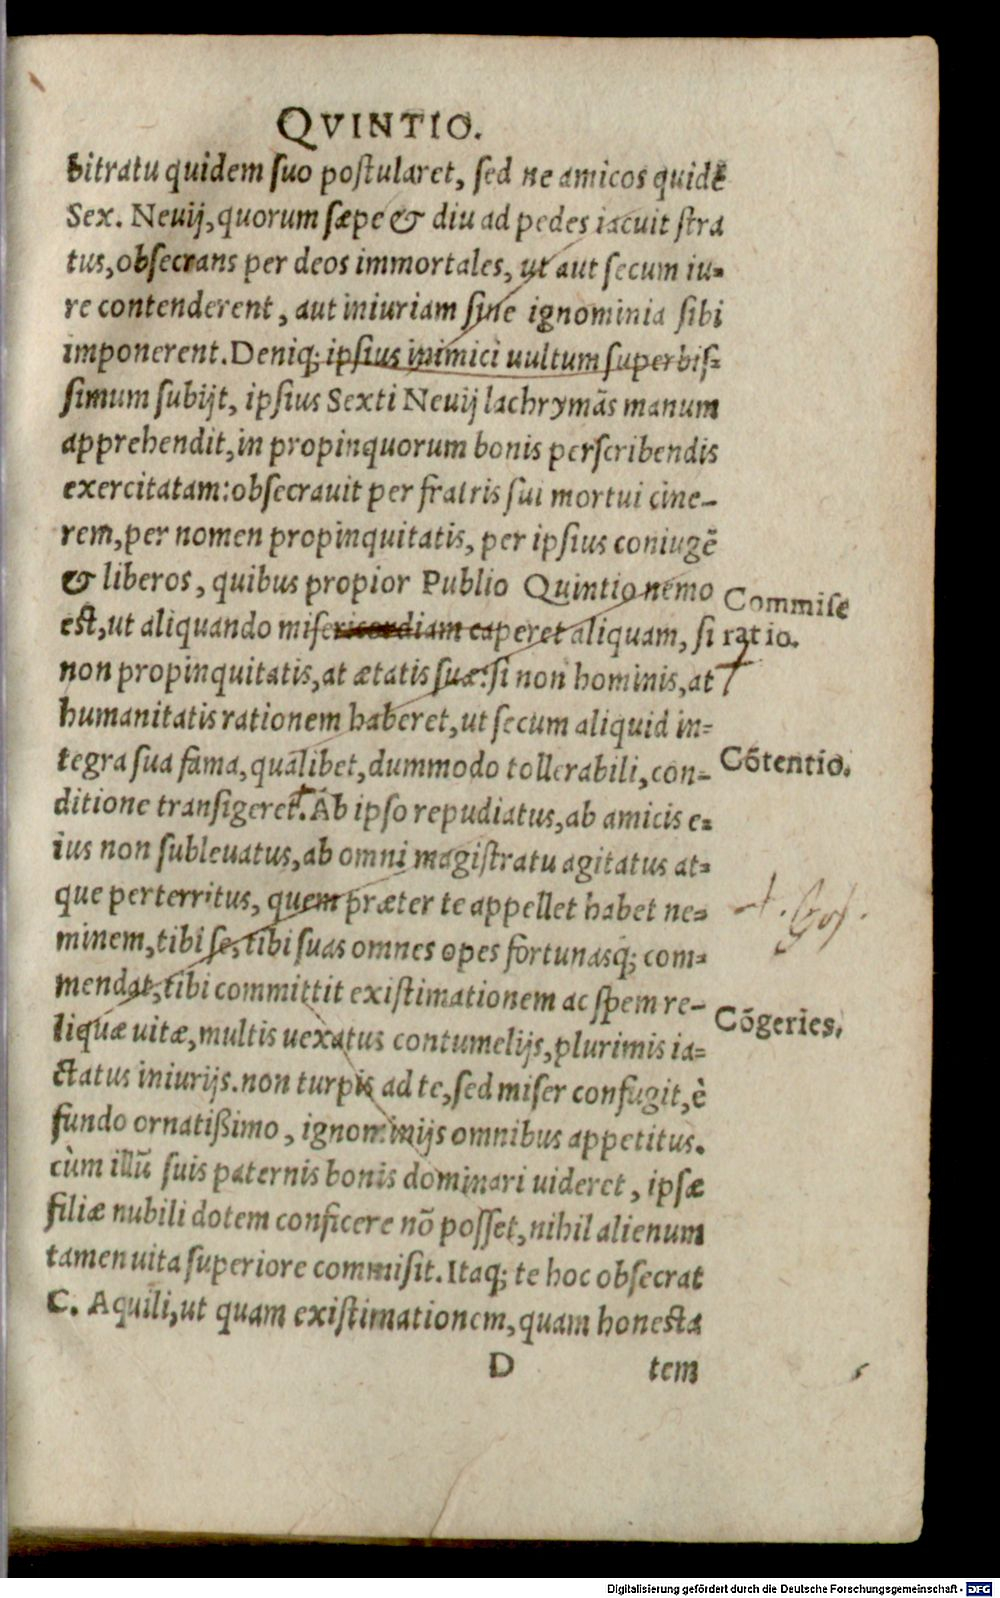 QVINTIO.
bitratu quidem suo postularet, sed ne amicos quidē
Sex. Neuij, quorum sæpe & diu ad pedes iacuit stra
tus, obsecrans per deos immortales, ut aut secum iu-
re contenderent, aut iniuriam sine ignominia sibi
imponerent. Deniq; ipsius inimici uultum superbis-
simum subijt, ipsius Sexti Neuij lachrymās manum
apprehendit, in propinquorum bonis perscribendis
exercitatam: obsecrauit per fratris sui mortui cine-
rem, per nomen propinquitatis, per ipsius coniugē
& liberos, quibus propior Publio Quintio nemo
est, ut aliquando misericordiam caperet aliquam, si
non propinquitatis, at ætatis suæ: si non hominis, at
humanitatis rationem haberet, ut secum aliquid in-
tegra sua fama, qualibet, dummodo tollerabili, con-
ditione transigeret. Ab ipso repudiatus, ab amicis e-
ius non subleuatus, ab omni magistratu agitatus at-
que perterritus, quem præter te appellet habet ne-
minem, tibi se, tibi suas omnes opes fortunasq; com-
mendat, tibi committit existimationem ac spem re-
liquæ uitæ, multis uexatus contumelijs, plurimis ia-
ctatus iniurijs. non turpis ad te, sed miser confugit, è
fundo ornatißimo, ignominijs omnibus appetitus.
cùm illū suis paternis bonis dominari uideret, ipsæ
filiæ nubili dotem conficere nō posset, nihil alienum
tamen uita superiore commisit. Itaq; te hoc obsecrat
C. Aquili, ut quam existimationem, quam honesta
D tem
Commise
ratio.
Cōtentio.
Cōgeries.
Digitalisierung gefördert durch die Deutsche Forschungsgemeinschaft - DFG